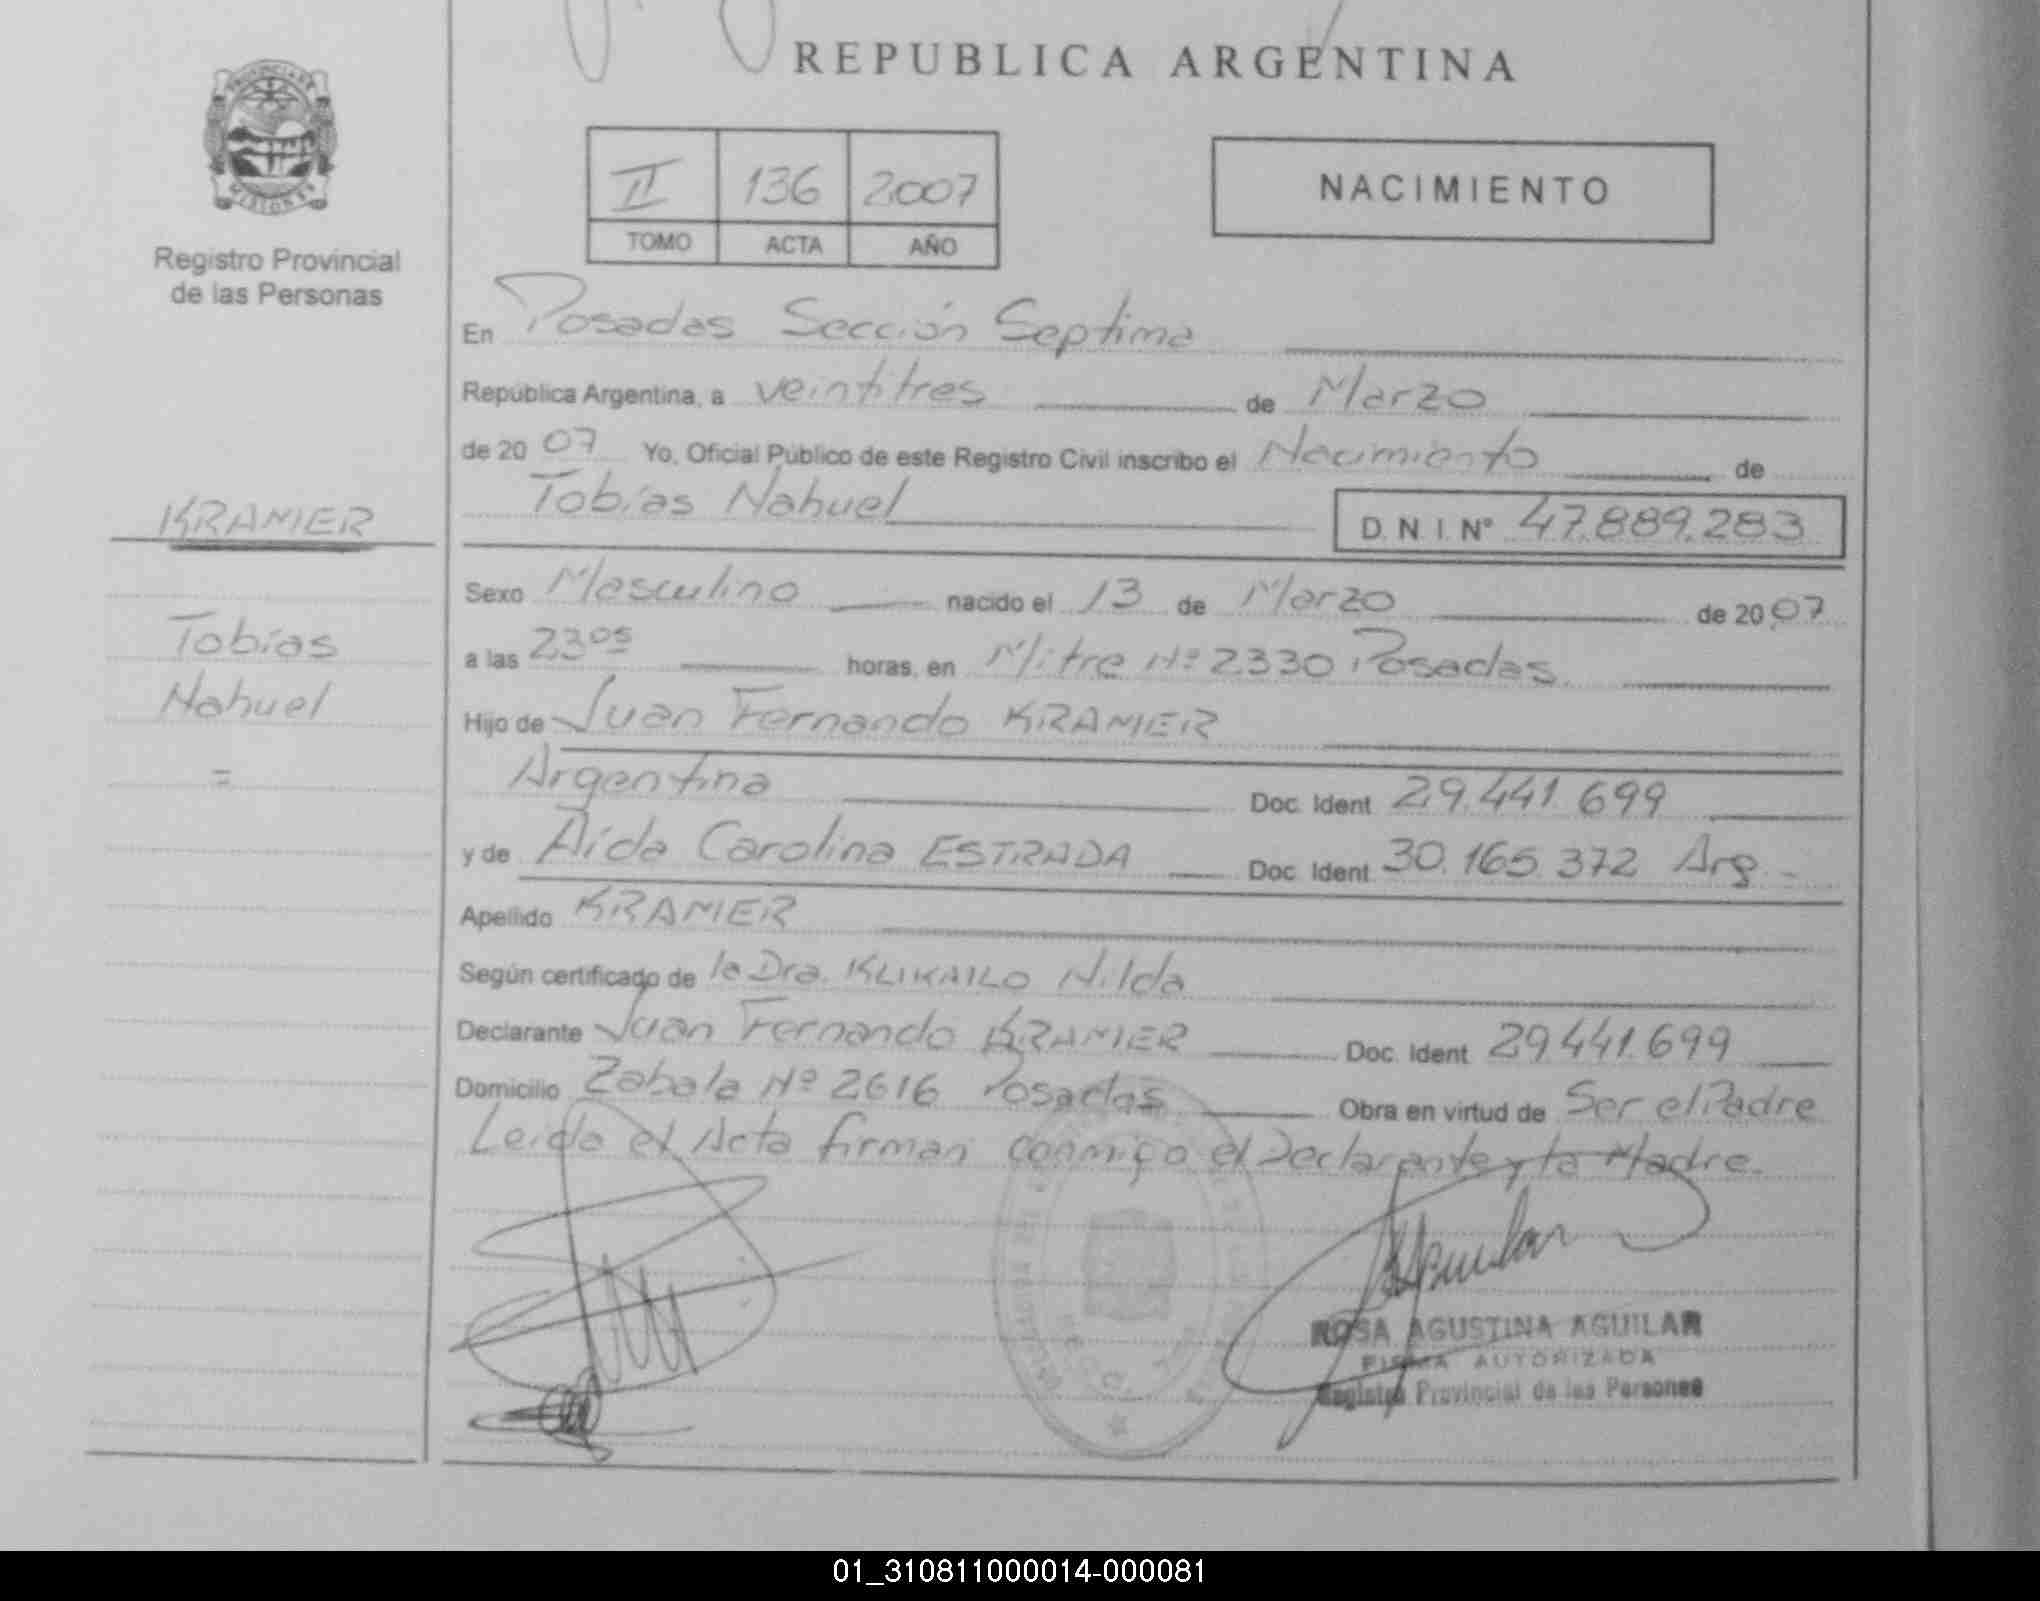 REPUBLICA ARGENTINA
PROVINCIA DE
MISIONES
Registro Provincial
de las Personas
II 136 2007
TOMO ACTA AÑO
NACIMIENTO
En Posadas Sección Septima
República Argentina, a veintitres de Marzo
de 20 07 Yo, Oficial Público de este Registro Civil inscribo el Nacimiento de
Tobias Nahuel D. N. I. N° 47.889.283
KRAMER
Tobias
Nahuel
=
Sexo Masculino nacido el 13 de Marzo de 20 07
a las 23 05 horas, en Mitre Nº 2330 Posadas.
Hijo de Juan Fernando KRAMER
Argentina Doc. Ident 29.441.699
y de Aida Carolina ESTRADA Doc. Ident. 30.165.372 Arg.
Apellido KRAMER
Según certificado de la Dra. KLIKAILO Nilda
Declarante Juan Fernando KRAMER Doc. Ident 29.441.699
Domicilio Zabala Nº 2616 Posadas Obra en virtud de Ser el Padre
Leida el Acta firman conmigo el Declarante y la Madre.
ROSA AGUSTINA AGUILAR
FIRMA AUTORIZADA
Registro Provincial de las Personas
01_310811000014-000081